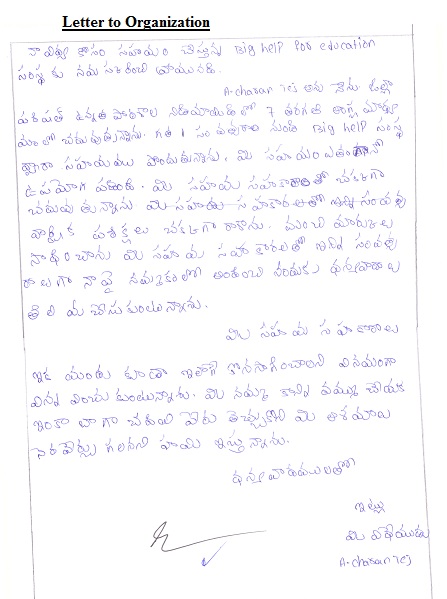 Letter to Organization
నా విద్య కోసం సహాయం చేస్తున్న Big help for education
సంస్థ కు నమస్కరించి వ్రాయునది.
A-charan tej అను నేను జిల్లా
పరిషత్ ఉన్నత పాఠశాల లో 7 తరగతి ఆంగ్ల మాధ్య
మంలో చదువుతున్నాను. గత 1 సంవత్సరాల నుండి Big help సంస్థ
ద్వారా సహాయము పొందుతున్నాను. మీ సహాయం ఎంతగానో
ఉపయోగ పడింది. మీ సహాయ సహకారాలతో చక్కగా
చదువు తున్నాను మీ సహాయ సహకారాలతో ఈ సంవత్స
వార్షిక పరీక్షలు చక్కగా రాశాను. మంచి మార్కులు
సాధించాను మీ సహాయ సహా కారాలతో ఇన్ని సంవత్స
రాలుగా నాపై నమ్మకంతో అందించి నందుకు ధన్యవాదాలు
తెలియ చేసుకుంటున్నాను.
మీ సహాయ సహకారాలు
ఇక ముందు కూడా ఇలాగే కొనసాగించాలని వినయంగా
విన్న వించు కుంటున్నాను. మీ నమ్మ కాన్ని వమ్ము చేయక
ఇంకా బాగా చదివి పేరు తెచ్చుకొని మీ ఆశయాలు
నెరవేర్చు గలనని హామీ ఇస్తున్నాను.
ధన్యవాదములతో
ఇట్లు
మీ విధేయుడు
A-charan tej